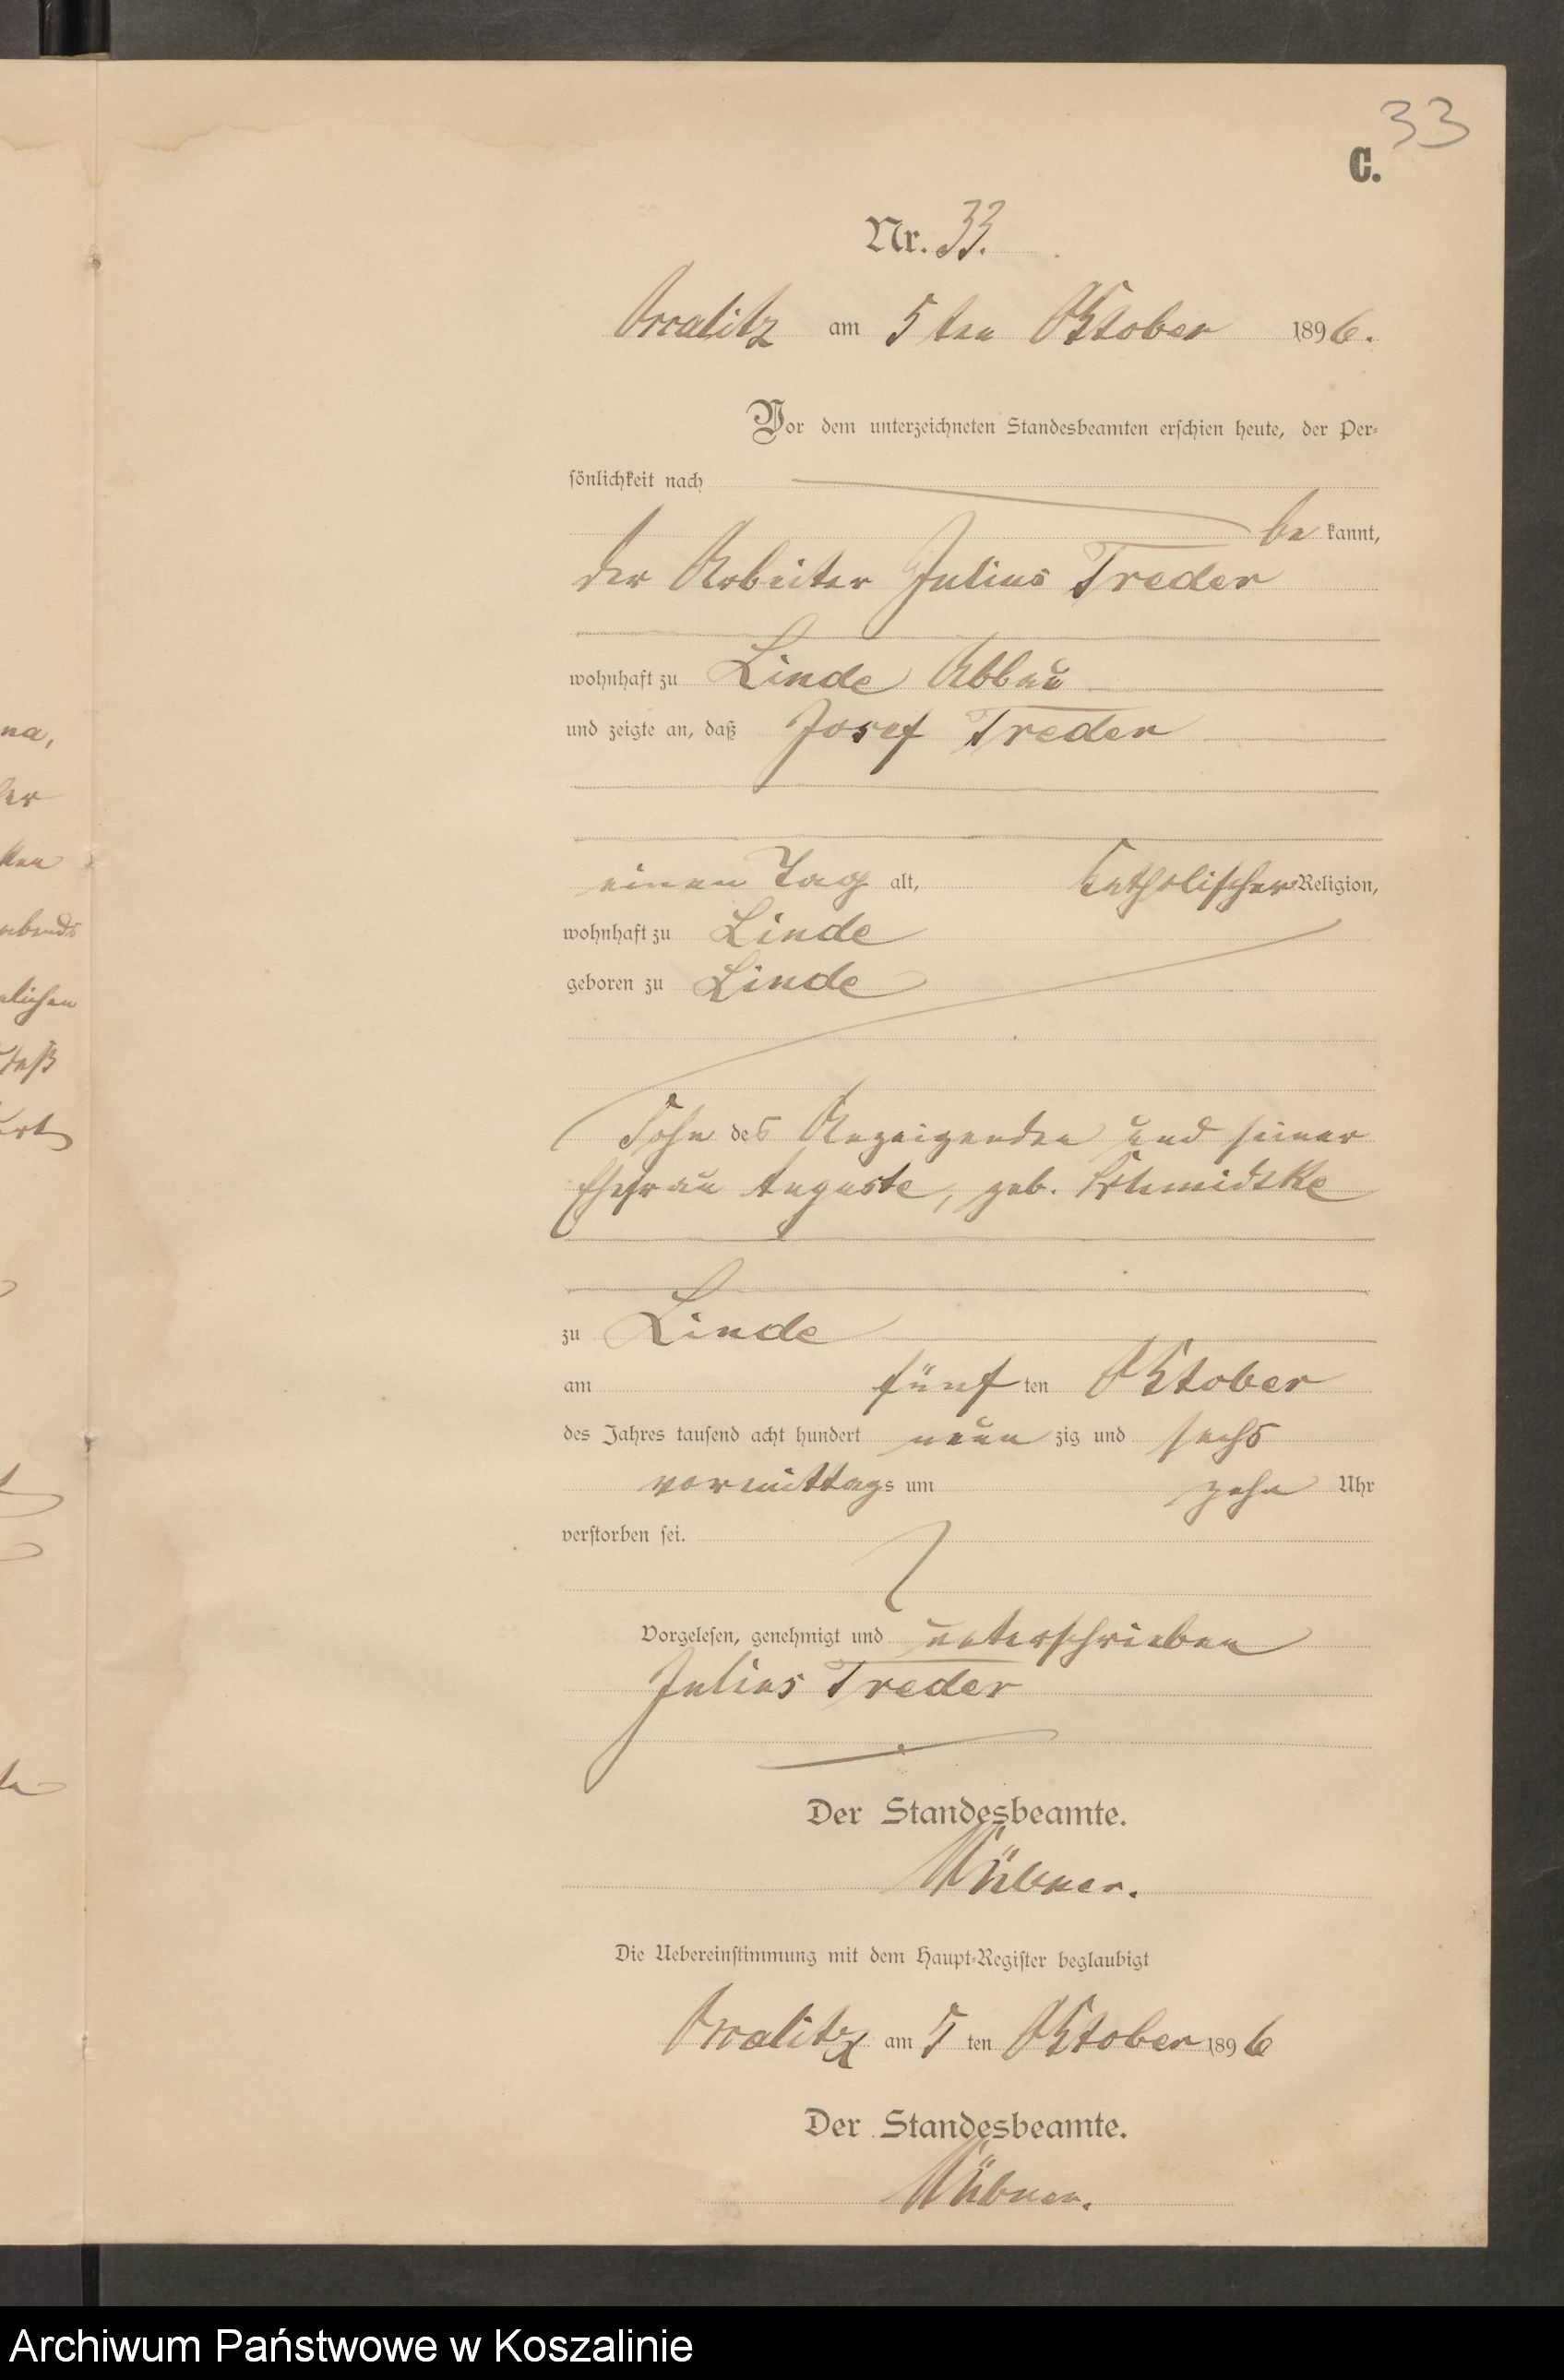 33
C.
Nr. 33.
am 5 ten Oktober 1896.
Vor dem unterzeichneten Standesbeamten erschien heute, der Per-
sönlichkeit nach
be kannt,
der Arbeiter Julius Treder
wohnhaft zu Linde Abbau
und zeigte an, daß Josef Treder
einen Tag alt, katholischer Religion,
wohnhaft zu Linde
geboren zu Linde
Sohn des Anzeigenden und seiner
Ehefrau Auguste, geb. Schmidtke
zu Linde
am fünf ten Oktober
des Jahres tausend acht hundert neun zig und sechs
vormittags um zehn Uhr
verstorben sei.
Vorgelesen, genehmigt und unterschrieben
Julius Treder
Der Standesbeamte.
Die Uebereinstimmung mit dem Haupt-Register beglaubigt
am 5 ten Oktober 1896
Der Standesbeamte.
na,
er
abends
Archiwum Państwowe w Koszalinie